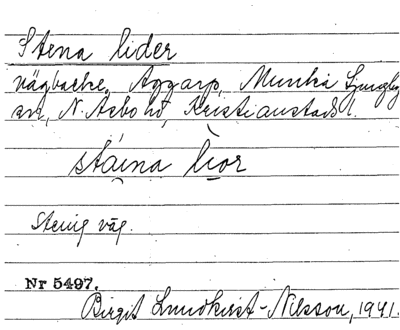 Stena lider
vägbacke, Aggarp, Munka Ljungby
sn, N. Åsbo hd, Kristianstads l.
stáina lìor
Stenig väg.
Nr 5497.
Birgit Lundkvist-Nilsson, 1941.